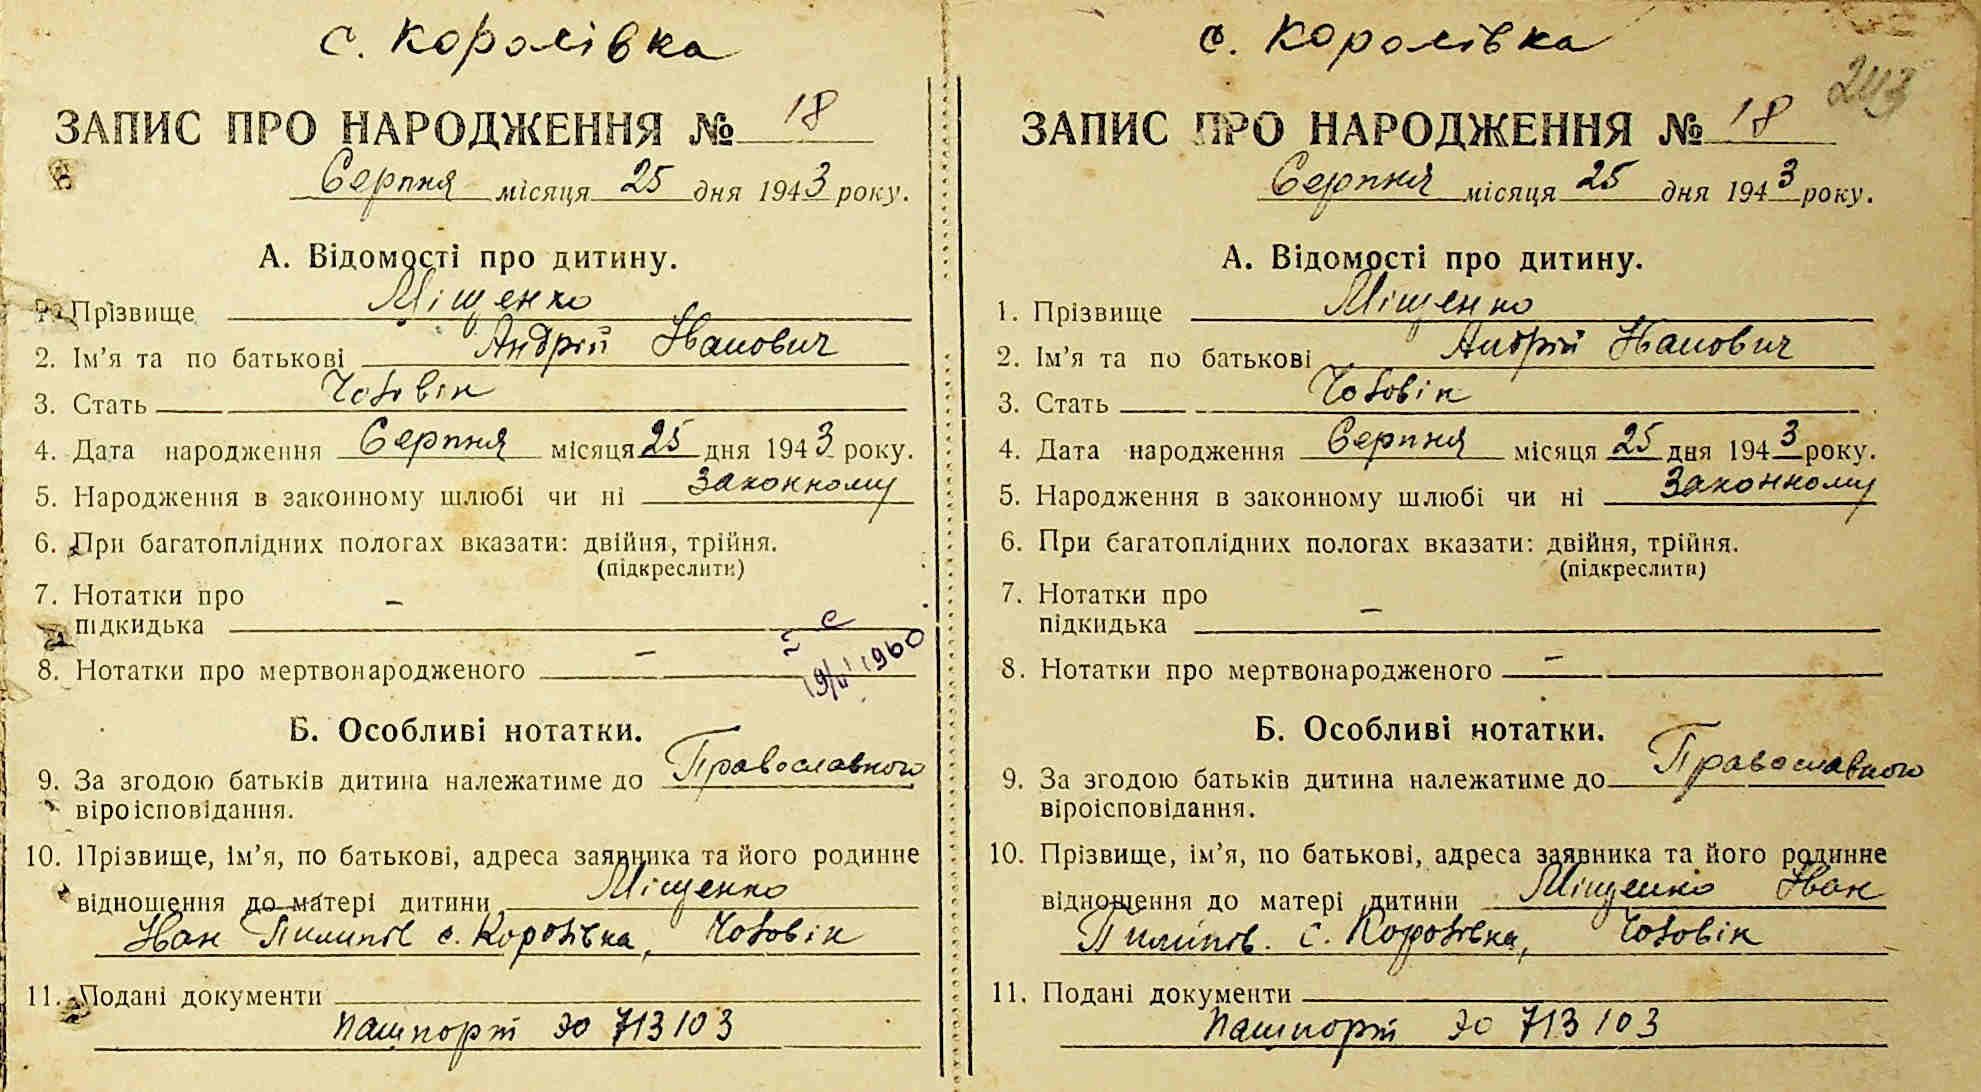 с. Королівка
ЗАПИС ПРО НАРОДЖЕННЯ № 18
Серпня місяця 25 дня 1943 року.
А. Відомості про дитину.
Прізвище Міщенко
2. Ім'я та по батькові Андрій Іванович
3. Стать Чоловік
4. Дата народження Серпня місяця 25 дня 1943 року.
5. Народження в законному шлюбі чи ні Законному
6. При багатоплідних пологах вказати: двійня, трійня.
(підкреслити)
7. Нотатки про
підкидька –
8. Нотатки про мертвонародженого –
1960
Б. Особливі нотатки.
9. За згодою батьків дитина належатиме до Православного
віроісповідання.
10. Прізвище, ім'я, по батькові, адреса заявника та його родинне
відношення до матері дитини Міщенко
Іван Пилипів с. Королівка, Чоловік
11. Подані документи
пашпорт ЭО 713103
с. Королівка
243
ЗАПИС ПРО НАРОДЖЕННЯ № 18
Серпня місяця 25 дня 1943 року.
А. Відомості про дитину.
1. Прізвище Міщенко
2. Ім'я та по батькові Андрій Іванович
3. Стать Чоловік
4. Дата народження Серпня місяця 25 дня 1943 року.
5. Народження в законному шлюбі чи ні Законному
6. При багатоплідних пологах вказати: двійня, трійня.
(підкреслити)
7. Нотатки про
підкидька –
8. Нотатки про мертвонародженого –
Б. Особливі нотатки.
9. За згодою батьків дитина належатиме до Православного
віроісповідання.
10. Прізвище, ім'я, по батькові, адреса заявника та його родинне
відношення до матері дитини Міщенко Іван
Пилипів. с. Королівка, Чоловік
11. Подані документи
пашпорт ЭО 713103